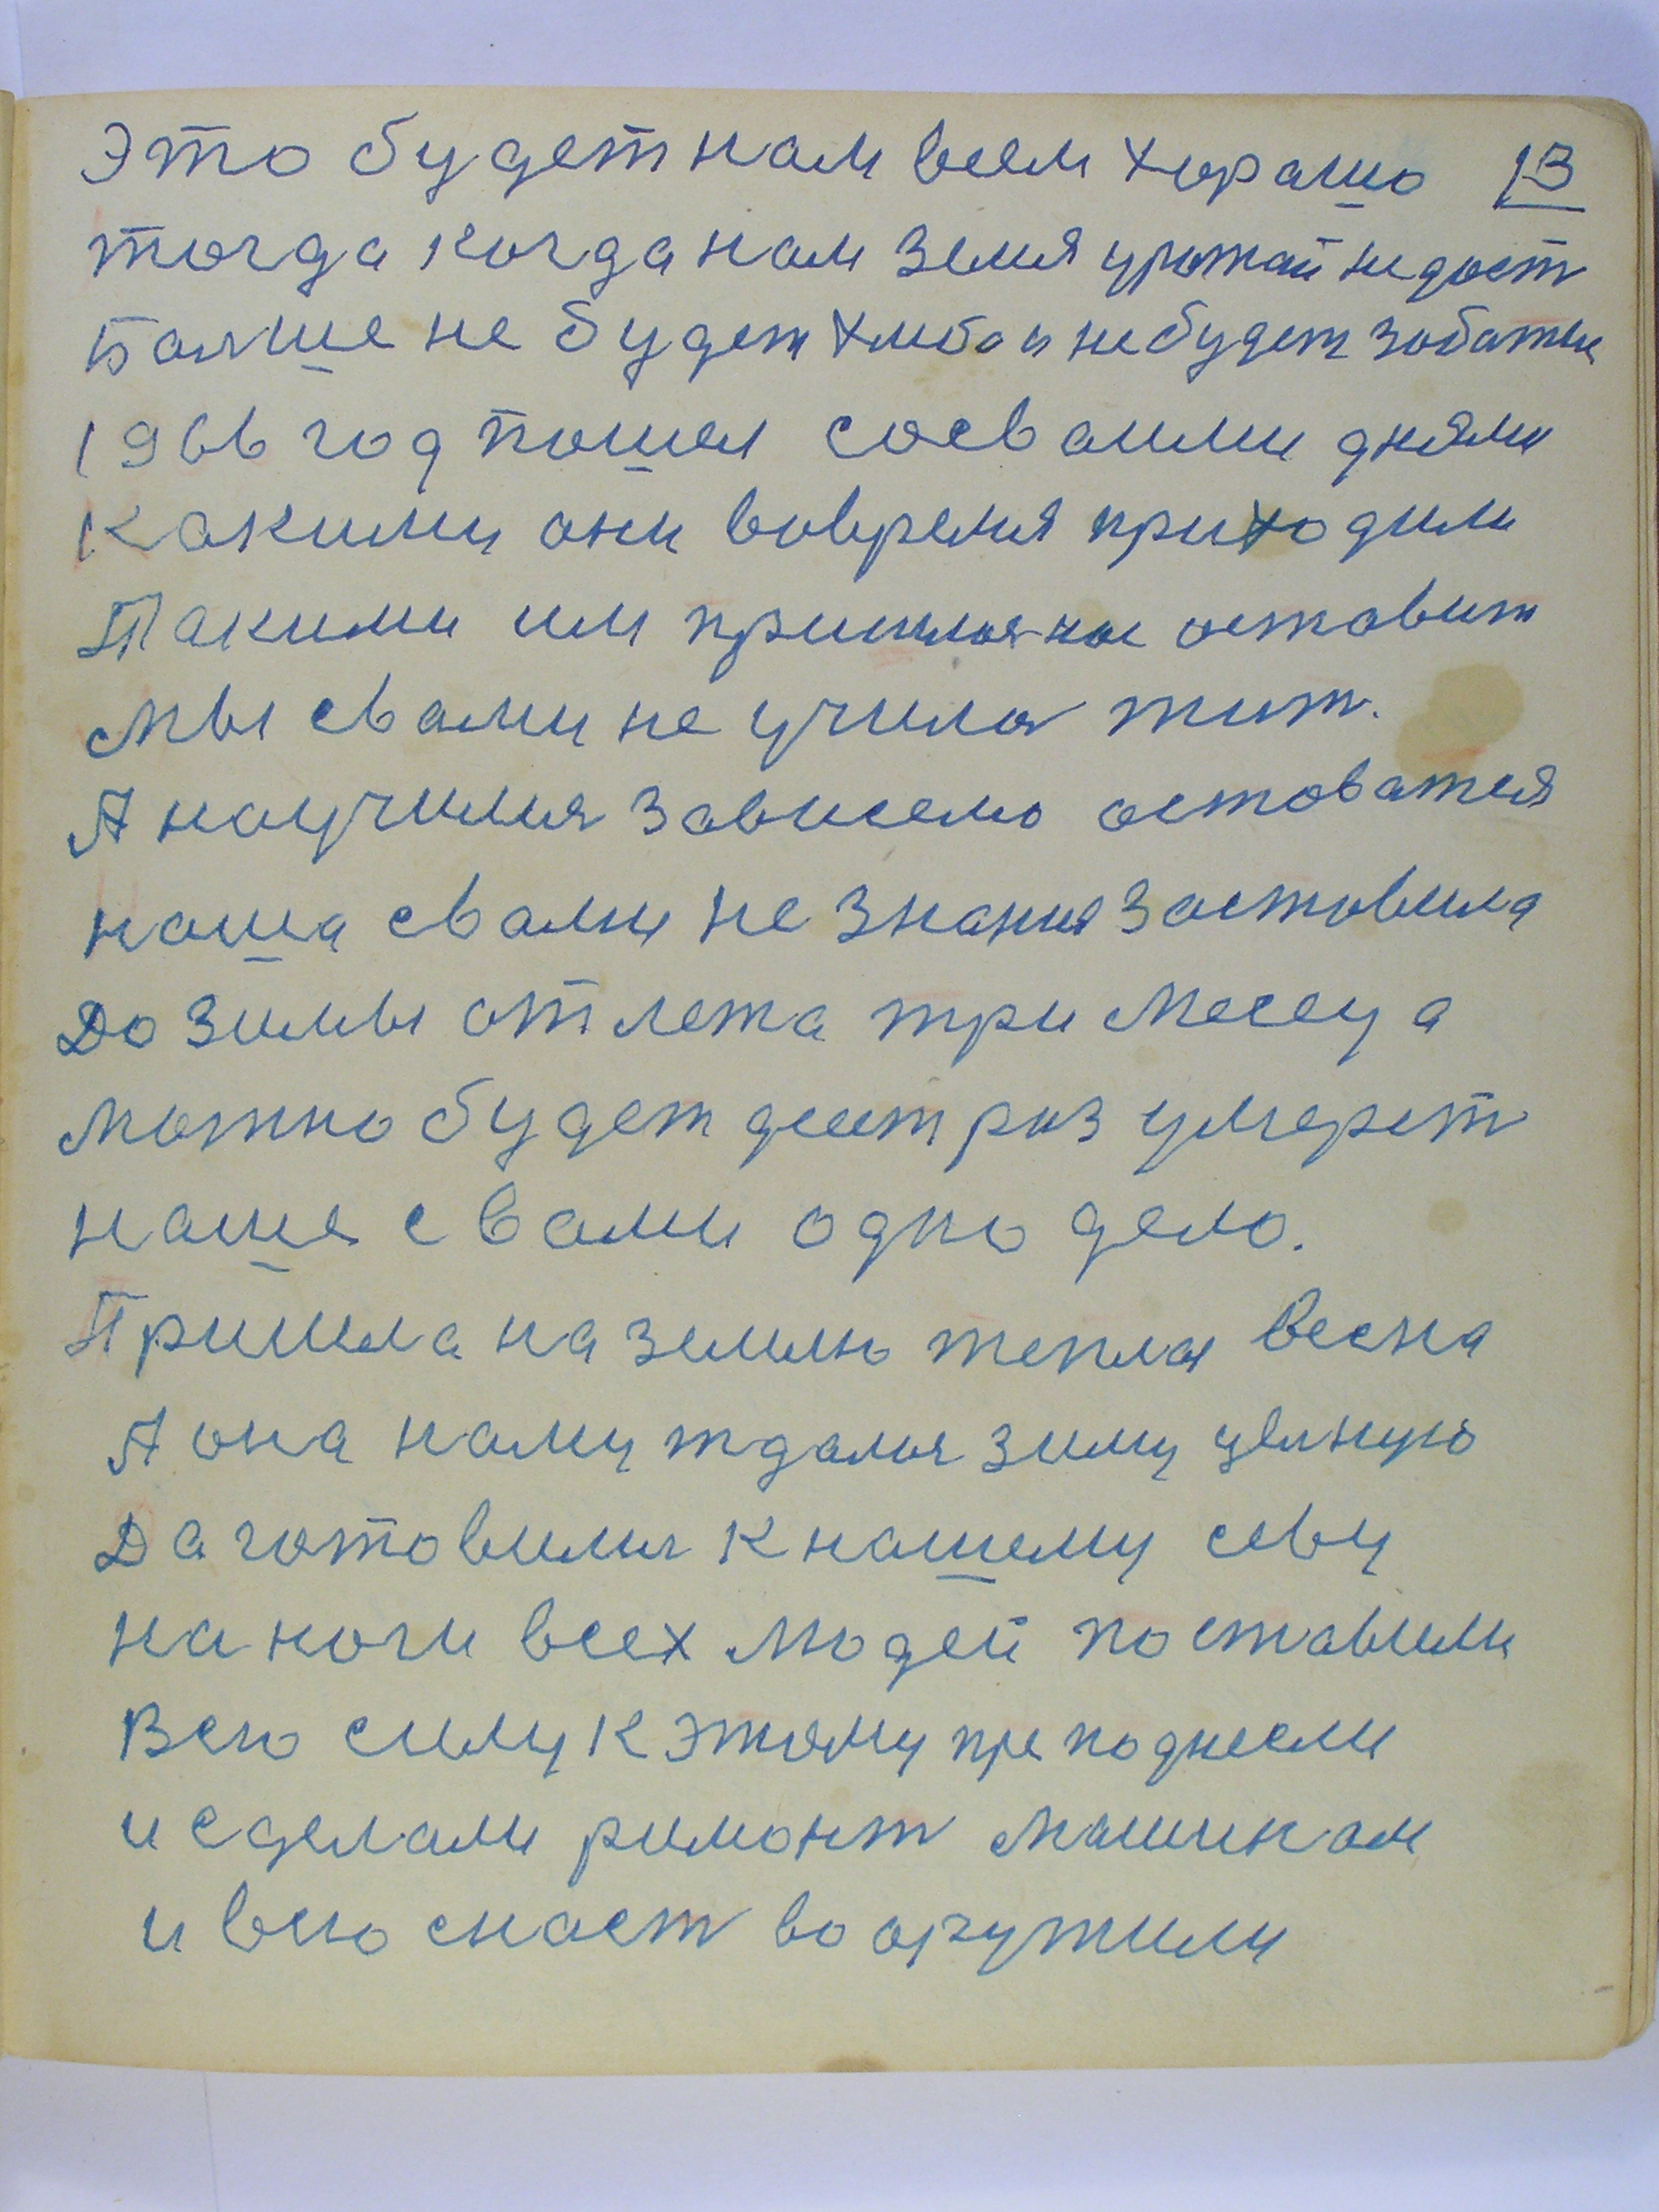 Это будет нам всем хорашо 13
тогда когда нам земля урожай недаст
Болше не будет хлеба и небудет забаты
1966 год пошел сосваими днями
Какими они вовремя приходили
Такими им пришлося нас оставит
мы свами не учился жит.
А научился зависемо оставатся
наша свами не знания заставила
До зимы от лета три месеца
можно будет десят раз умерет
наше с вами одно дело.
Пришла на землю теплая весна
А она нами ждалася зиму целную
Да готовился к нашему севу
на ноги всех людей поставили
Всю силу к этому преподнесли
и сделали римонт машинам
и всю снаст вооружили